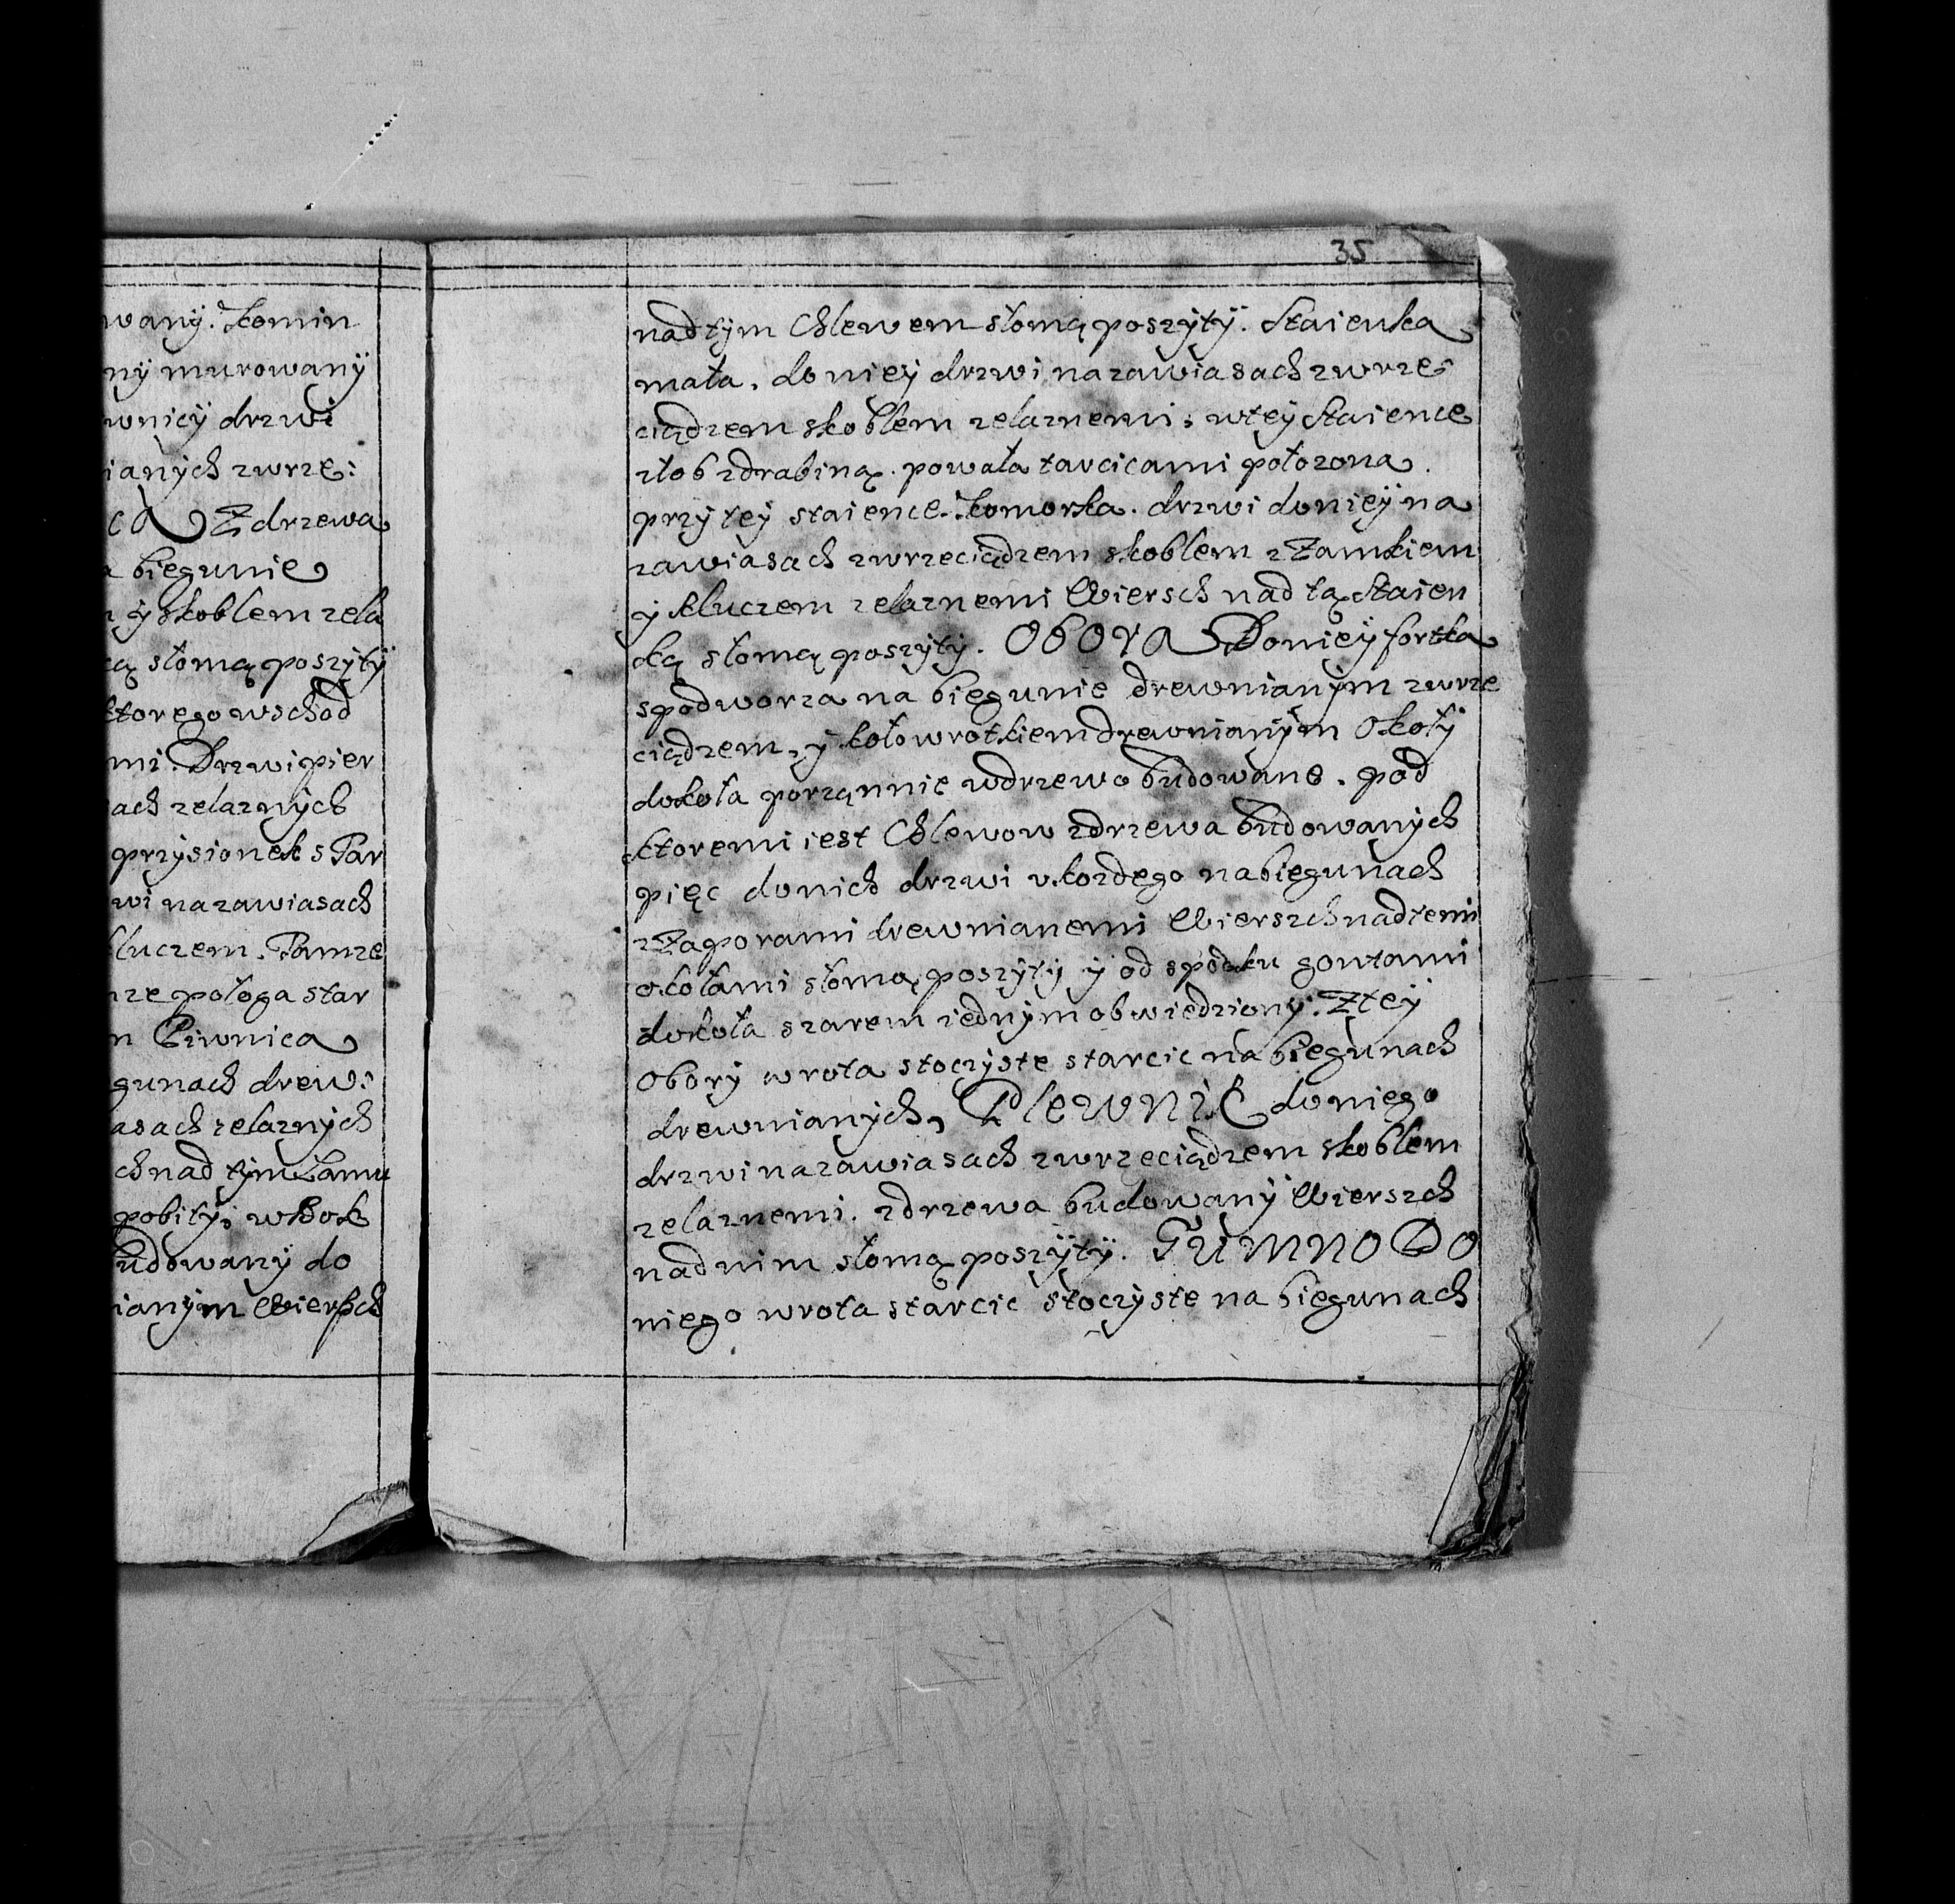 wany. Komin
ny murowany
wnicy drzwi
ianych zwrze:
ca Z drzewa
a biegunie
y skoblem zela
ką słomą poszyty
ktorego wschod
mi. Drzwi pier
ach zelaznych
przysionek s Par
wi na zawiasach
kluczem. Tamze
ze połoga star
n Piwnica
gunach drew:
asach zelaznych
ch nad tym Lamu
pobity; w Bok
udowany do
ianym Wierssch
35
nad tym Chlewem słomą poszyty. Staienka
mała. do niey drzwi na zawiasach zwrze:
ciądzem skoblem zelaznemi; w tey Staience
złob zdrabiną. powała tarcicami położona.
przy tey staience. Komorka. drzwi do niey na
zawiasach zwrzeciądzem skoblem z Zamkiem
y kluczem zelaznemi Wiersch nad tą Staien
ką słomą poszyty. Obora Do niey fortka
spodworza na biegunie drewnianym zwrze
ciądzem, y kołowrotkiem drewnianym Okoły
dokoła porządnie wdrzewo budowane. pod
ktoremi iest Chlewow zdrzewa budowanych
pięc do nich drzwi v kozdego na biegunach
z Zaporami drewnianemi Wierszch nad temi
okołami słomą poszyty y od spodku gontami
dokoła szarem iednym obwiedziony. Z tey
Obory wrota stoczyste starcic na biegunach
drewnianych, Plewnik do niego
drzwi na zawiasach zwrzeciądzem skoblem
zelaznemi. zdrzewa budowany Wierszch
nad nim słomą poszyty. Gumno Do
niego wrota starcic stoczyste na biegunach